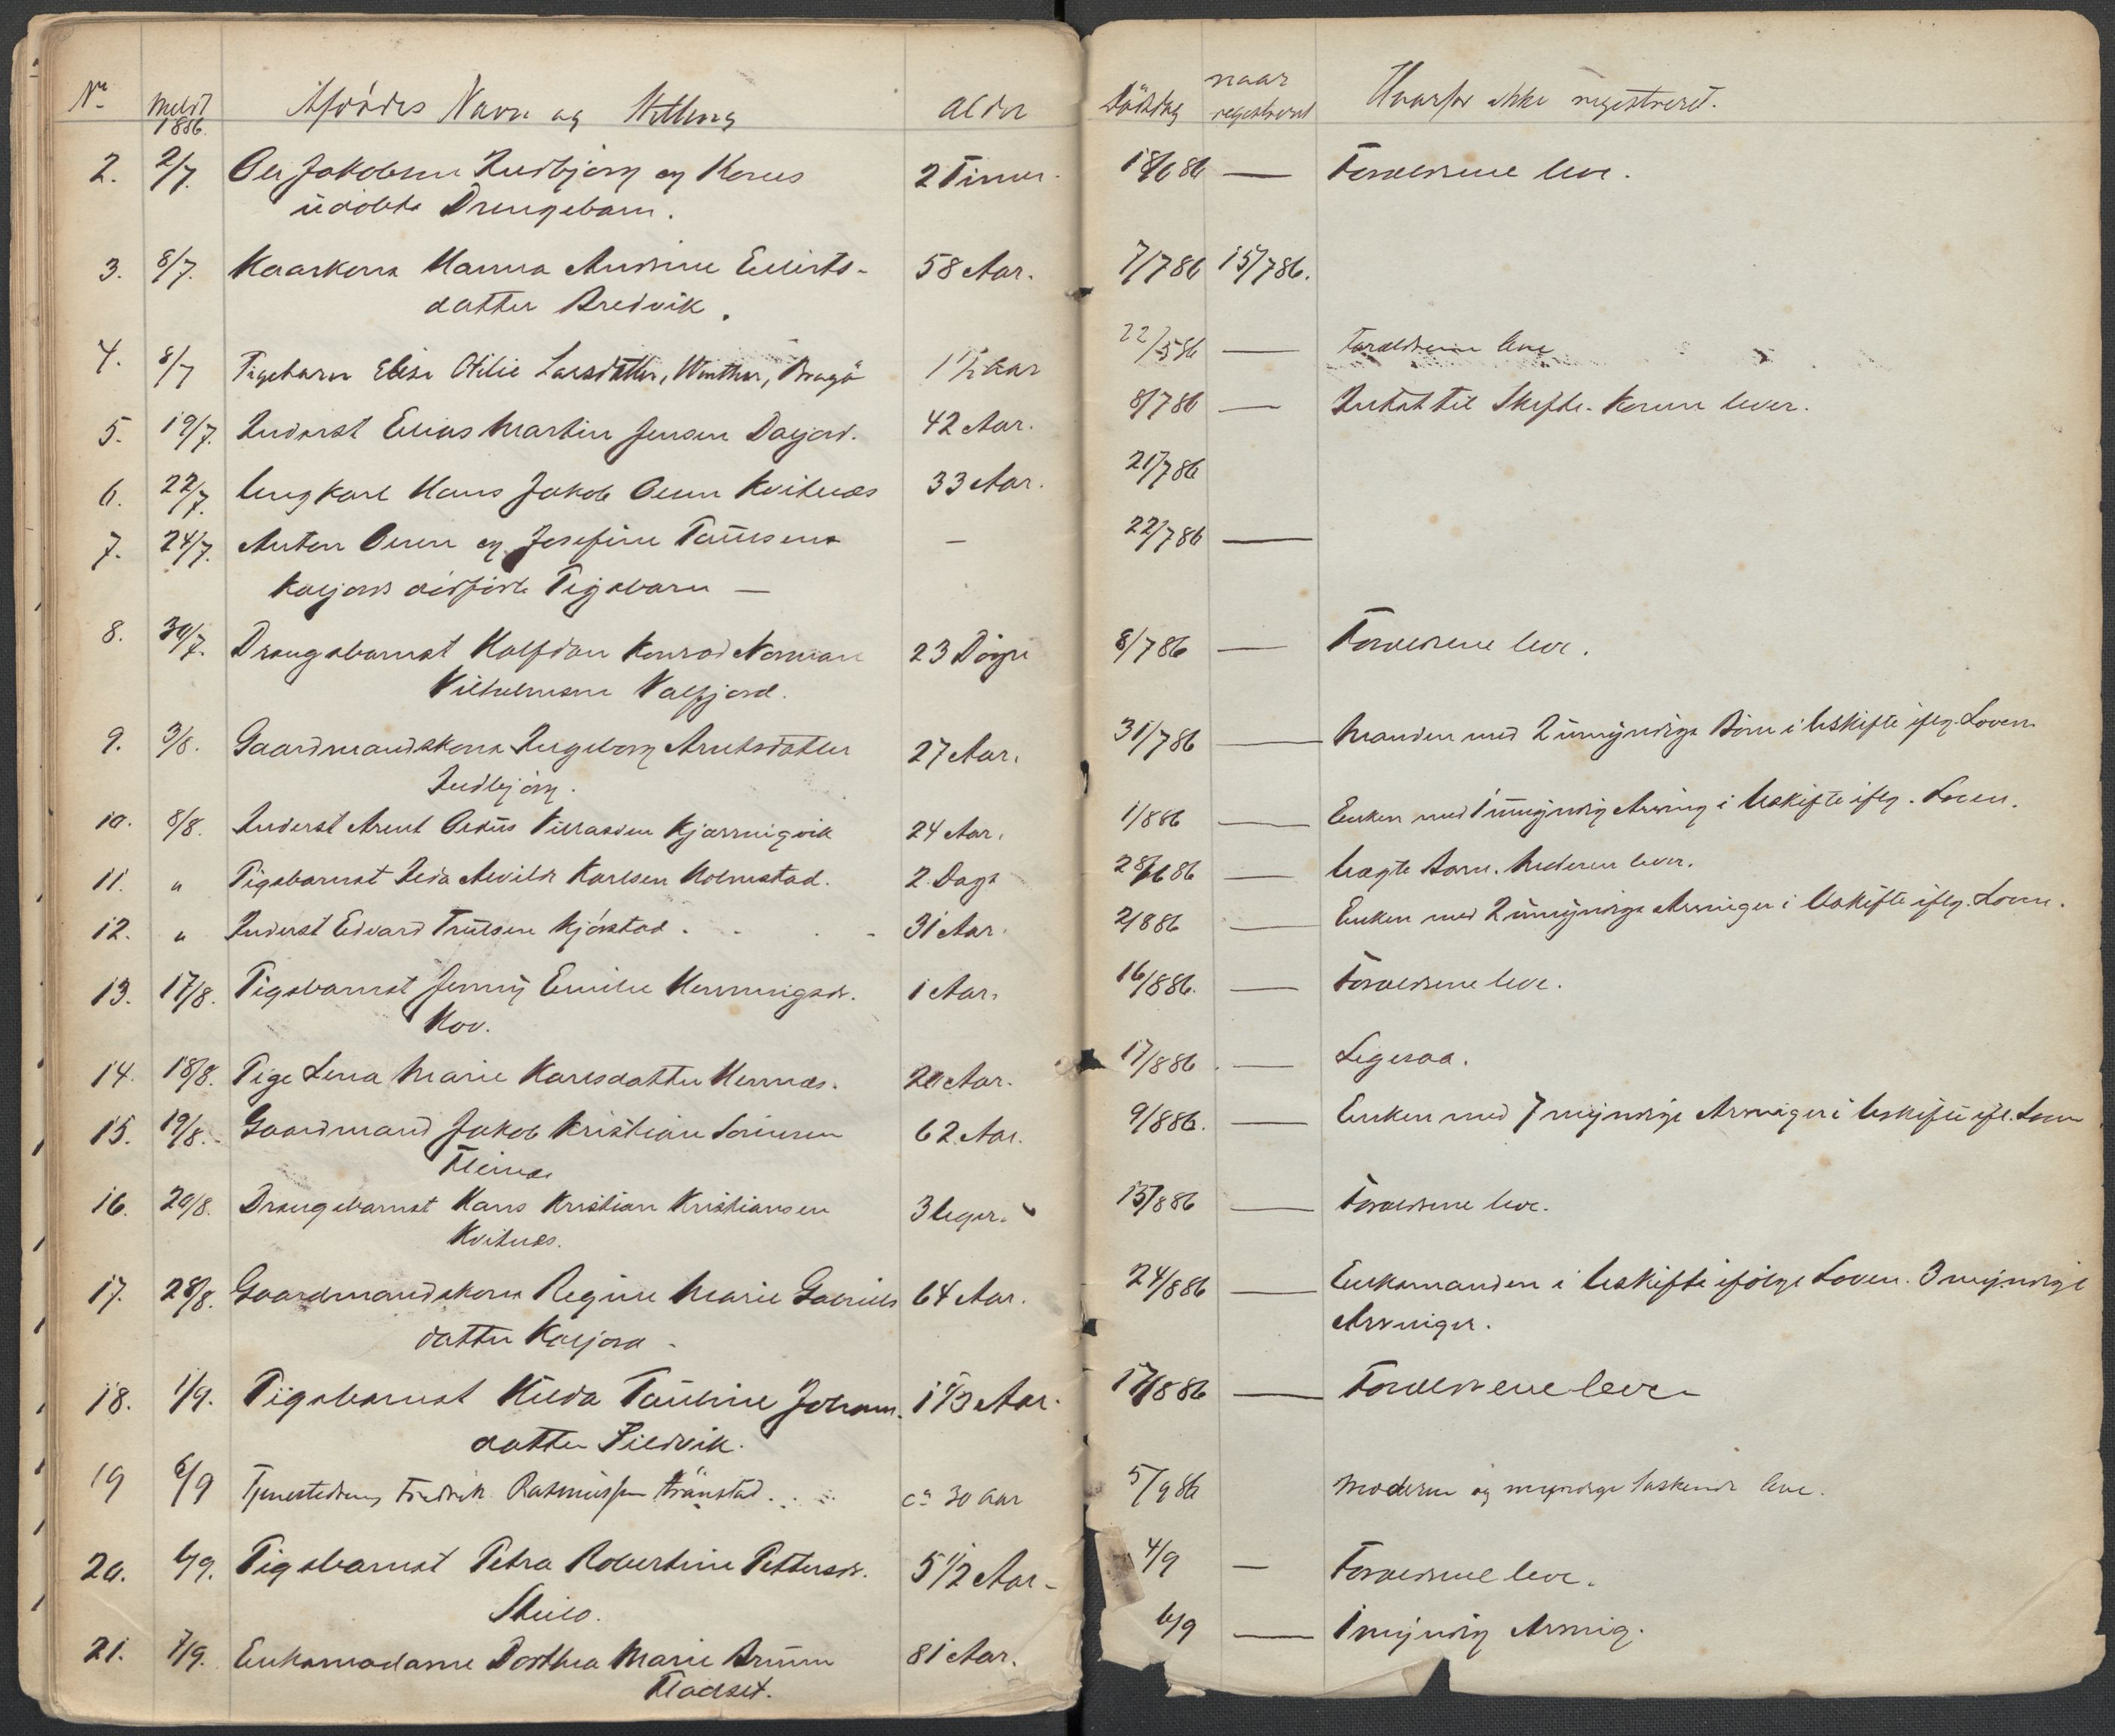 No Meldt 1886. Afdødes Navn og Stilling Alder Dødsdag naar registreret Hvorfor ikke registreret.
2. 2/7. Ole Jakobsen Indbjørg og Kones 2 Timer. 18/6 86 — Forældrene leve.
udøbte Drengebarn.
3. 8/7. Kaarkona Hanna Andrine Eilerts- 58 Aar. 7/7 86 15/7 86.
datter Bredvik.
4. 8/7 Pigebarn Elise Otilie Larsdatter, Winther, 1 1/2 Aar 22/5 86 — Forældrene leve
5. 19/7. Inderst Elias Martin Jensen Daljord. 42 Aar. 8/7 86 — Intet til Skifte. Konen lever.
6. 22/7. Ungkarl Hans Jakob Olsen Kvitnes 33 Aar. 21/7 86
7. 24/7. Anton Olsen og Josefine Paulsens — 22/7 86 —
Kaljord dødfødte Pigebarn —
8. 30/7. Drengebarnet Halfdan Konrad Norman 23 Døgn 8/7 86 — Forældrene leve.
Vilhelmsen Valfjord.
9. 3/8. Gaardmandskona Ingeborg Arntsdatter 27 Aar. 31/7 86 — Manden med 2 umyndige Børn i Uskifte iflg. Loven.
Indbjørg.
10. 8/8. Inderst Arent Villasden Kjærringvik 24 Aar. 1/8 86 — Enken med 1 umyndig Arving i Uskifte iflg. Loven.
11. " Pigebarnet Alvilde Karlsen Holmstad. 2 Dage 28/6 86 — Uægte Barn. Moderen lever.
12. " Inderst Edvard Trulsen Kjørstad. 31 Aar. 2/8 86 — Enken med 2 umyndige Arvinger i Uskifte iflg. Loven.
13. 17/8. Pigebarnet Jenny Emilie Henningsdr. 1 Aar. 16/8 86. — Forældrene leve.
Hov.
14. 18/8. Pige Lena Marie Karlsdatter Hennes. 20 Aar. 17/8 86. — Ligesaa.
15. 19/8. Gaardmand Jakob Kristian Sørensen 62 Aar. 9/8 86. — Enken med 7 myndige Arvinger i Uskifte ifl. Loven
Fleines
16. 20/8. Drengebarnet Hans Kristian Kristiansen 3 Uger. 15/8 86 — Forældrene leve.
Kvitnes.
17. 28/8. Gaardmandskona Regine Marie Gabriels 64 Aar. 24/8 86 — Enkemanden i Uskifte ifølge Loven. 3 myndige
datter Kaljord. Arvinger.
18. 1/9. Pigebarnet Hilda Pauline Johan- 1 1/3 Aar. 17/8 86 — Forældrene leve
datter Sildvik.
19 6/9 Tjenestedreng Fredrik Rasmussen Frånstad. ca 30 Aar 5/9 86 Moderen og myndige Søskende leve.
20. 6/9. Pigebarnet Petra Robertine Pettersdr. 5 1/2 Aar. 4/9 — Forældrene leve.
Skilo.
21. 7/9. Enkemadame Dorthea Marie Bruun 81 Aar. 6/9 — 1 myndig Arving.
Fladset.